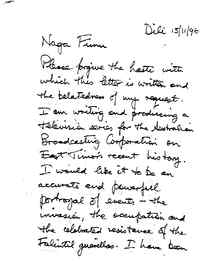 Dili 15/11/98
Please forgive the haste with
which this letter is written and
the belatedness of my request.
I am writing and producing a
television series for the Australian
Broadcasting Corporation on
East Timor's recent history.
I would like it to be an
accurate and powerful
portrayal of events – the
invasion, the occupation and
the celebrated resistance of the
Falintil guerillas. I have been